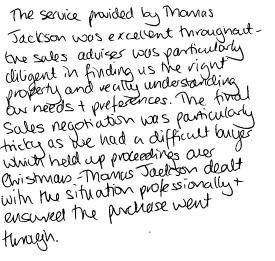 The service provided by Thomas
Jackson was excellent throughout -
the sales adviser was particularly
diligent in finding us the right
property and really understanding
our needs + preferences. The final
sales negotiation was particularly
tricky as we had a difficult buyer
which held up proceedings over
Christmas - Thomas Jackson dealt
with the situation professionally +
ensured the purchase went
through.